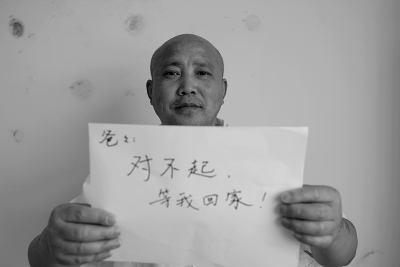 爸爸：
对不起，
等我回家！